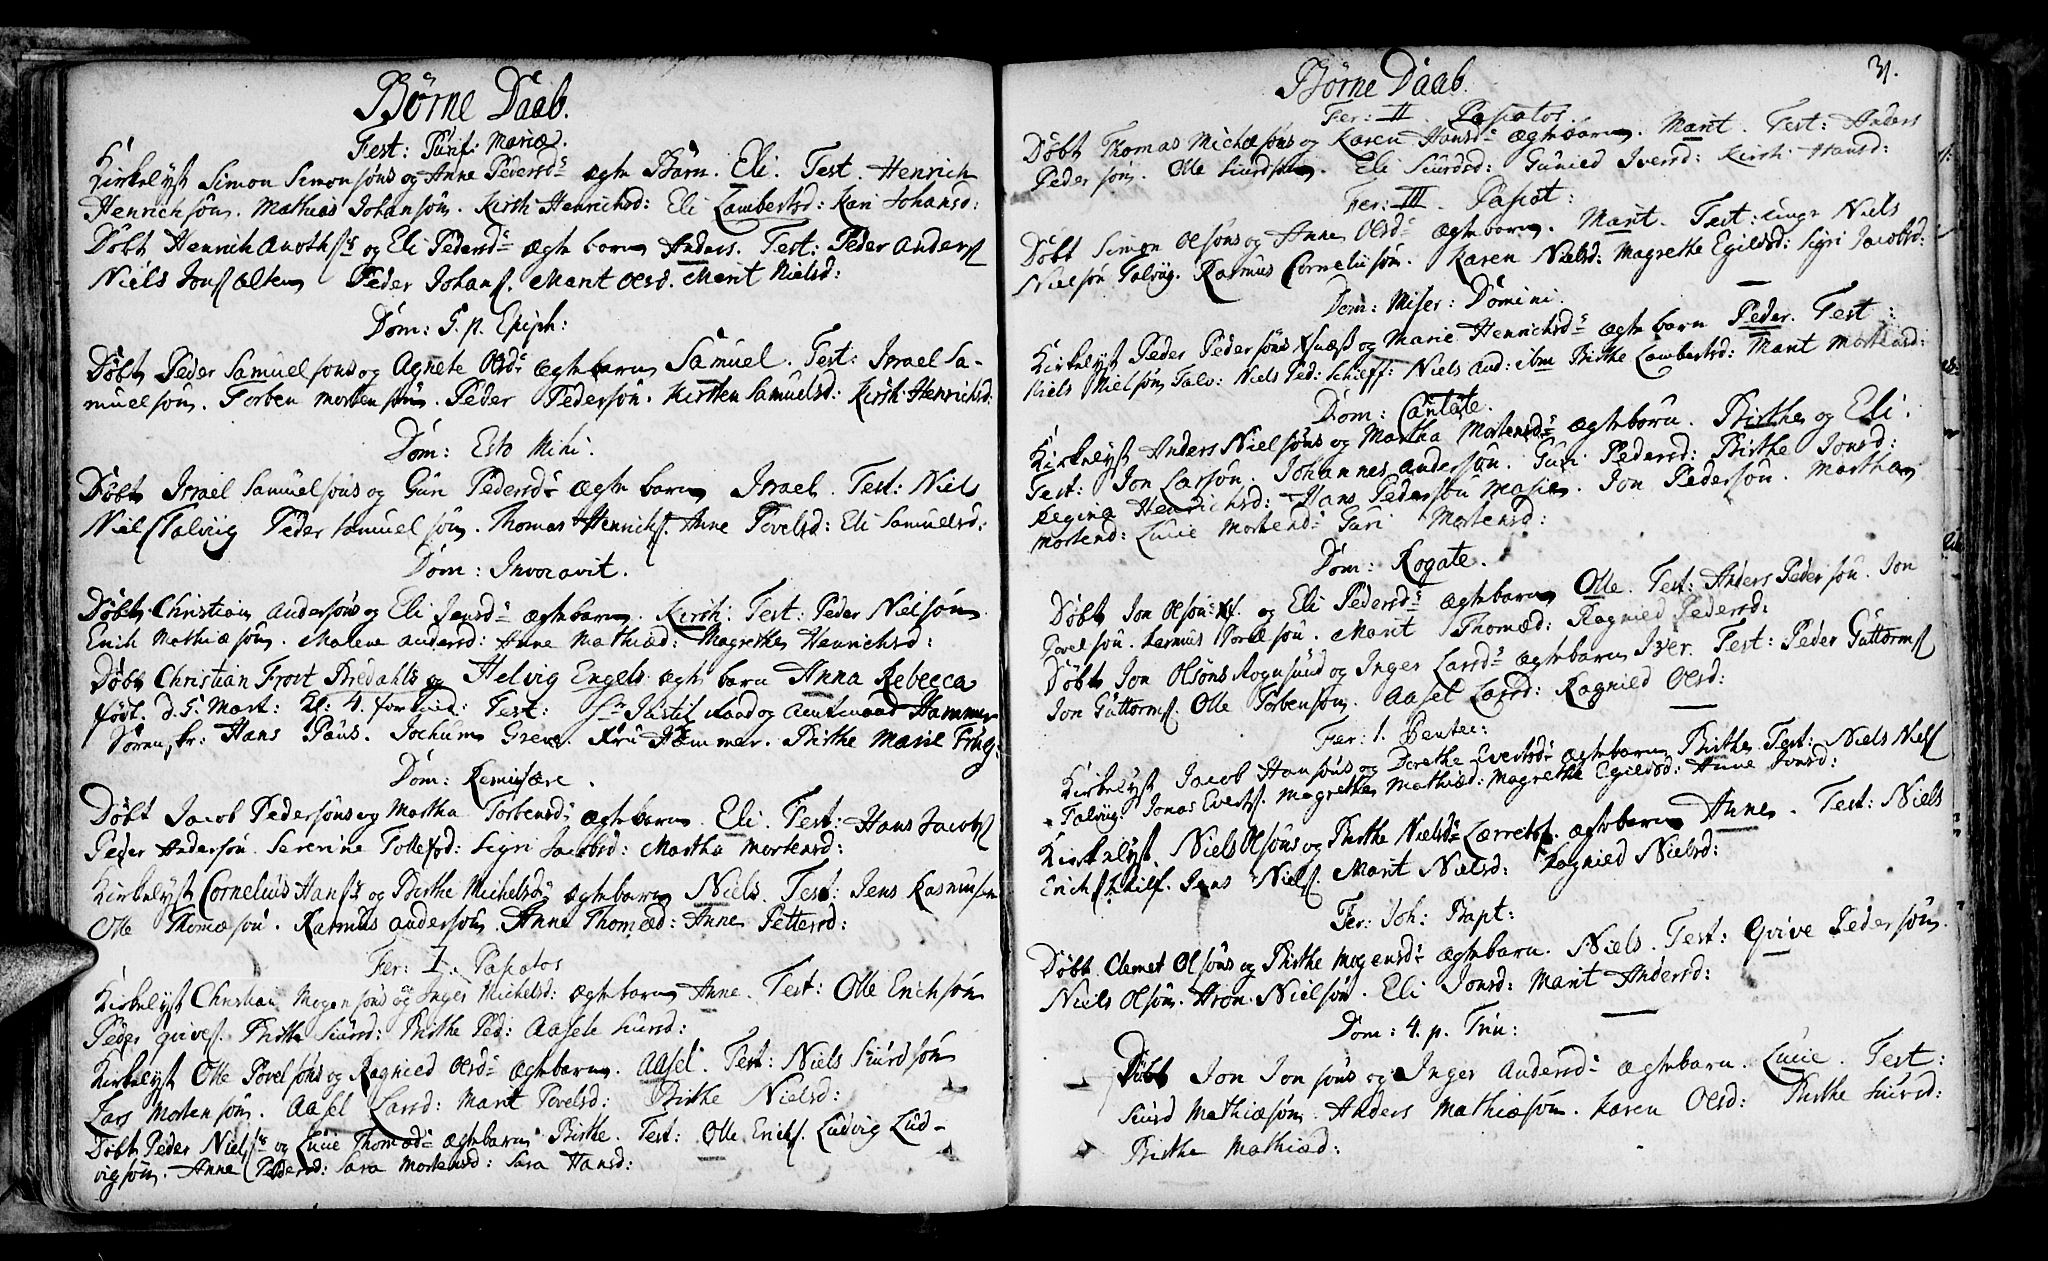 Börne Daab.
Fest: Purif: Mariæ.
Kirkelyst Simon Simonsöns og Anne Pedersd: ægte Barn. Eli. Test. Henrich
Henrichsön. Mathias Johansön. Kirst: Henrichsd: Eli Lambertsd: Kari Johansd:
Döbt Henrich og Eli Pedersd: ægte barn Anders. Test: Peder Anders
Niels Jons alten Peder Johans. Marit Olsd. Marit Nielsd:
Dom: 5. p. Epiph:
Döbt Peder Samuelsöns og Agnete Olsd: ægte barn Samuel. Test: Israel Sa-
muelsön. Torben Mortensön. Peder Pedersön. Kirsten Samuelsd: Kirst: Henrichsd:
Dom: Esto Mihi.
Döbt Israel Samuelsöns og Guri Pedersd: ægte barn Israel. Test: Niels
Niels Talvig Peder Samuelsön. Thomas Henrichs. Anne Povelsd: Eli Samuelsd:
Dom: Invocavit.
Döbt Christian Andersöns og Eli Jensd: ægte barn. Kirst: Test: Peder Nielsön
Erich Mathiæsön. Malene Andersd: Anne Mathiæd: Magrethe Henrichsd:
Döbt Christian Frost Bredahls og Helvig Engels ægte barn Anna Rebecca
födt. d. 5. Mart: Kl: 4. formid: Test: Sr Justitz Raad og Amtmand Hammer
Sören, hr: Hans Paus. Jochum Greve. Fru Hammer. Birthe Marie
Dom: Reminisere.
Döbt Jacob Pedersöns og Martha Torbensd: ægte barn. Eli. Test: Hans Jacobs
Peder Andersön. Serenine Tollefsd: Sigri Jacobsd: Martha Mortensd:
Kirkelyst Cornelius Hans: og Birthe Michelsd: ægte barn Niels. Test: Jens Rasmusön
Olle Thomæsön. Rasmus Andersön. Anne Thomæd: Anne Pettersd:
Fer: I. Pascatos
Kirkelyst Christian Mogensöns og Inger Michelsd: ægte barn Anne. Test: Olle Erichsön
Peder Qvives. Birthe Siursd: Birthe Ped: Aasele Siursd:
Kirkelyst Olle Povelsöns og Ragnied Olsd: ægte barn. Aasel. Test: Niels Siurdsön
Lars Mortensön. Aasel Larsd: Marit Povelsd: Birthe Nielsd:
Döbt Peder Niels: og Lucie Thomæd: ægte barn Birthe. Test: Olle Erichs. Ludvig Lud-
vigsön. Anne Pedersd: Sara Mortensd: Sara Hansd:
Börne Daab.
31.
Fer: II. Pascatos.
Döbt Thomas Michæsöns og Karen Hansd: ægte barn. Marit. Test: Anders
Pedersön. Olle Siurdsön. Eli Siurdsd: Gunied Iversd: Kirst: Hansd:
Fer: III. Pascat:
Döbt Simon Olsöns og Anne Olsd: ægte barn. Marit. Test: unge Niels
Nielsön Talvig. Rasmus Corneliisön. Karen Nielsd: Magrethe Egilsd: Sigri Jacobsd:
Dom: Miser: Domini.
Kirkelyst Peder Pedersöns og Marie Henrichsd: ægte barn Peder. Test:
Niels Nielsön Talv: Niels Ped: Niels And: ibm Birthe Lambertsd: Marit Mortensd:
Dom: Cantate.
Kirkelyst Anders Nielsöns og Martha Mortensd: ægte börn. Birthe og Eli.
Test: Jon Larsön. Johannes Andersön. Guri Pedersd: Birthe Jonsd:
Regina Henrichsd: Hans Pedersön Jon Pedersön. Martha
Mortensd: Lucie Mortend: Guri Mortensd:
Dom: Rogate.
Döbt Jon Olsön: og Eli Pedersd: ægte barn Olle. Test: Anders Pedersön. Jon
Povelsön. Rasmus Marit Thomæd: Ragnied Pedersd:
Döbt Jon Olsöns Rognsund og Inger Larsd: ægte barn Iver. Test: Peder Guttorms
Jon Guttorms. Olle Torbensön. Aasel Larsd: Ragnied Olsd:
Fer: 1. Pentec:
Kirkelyst Jacob Hansöns og Dorethe Evertsd: ægte barn Birthe. Test: Niels Niels
Talvig. Jonas Everts. Magrethe Mathiæd: Magrethe Egilsd: Anne Jonsd:
Kirkelyst. Niels Olsöns og Birthe Nielsd: ægte barn Anne. Test: Niels
Erichs Jens Niels. Marit Nielsd: Ragnied Nielsd:
Fer: Joh: Bapt:
Döbt Clemet Olsöns og Birthe Mogensd: ægte barn. Niels. Test: Qvive Pedersön.
Niels Olsön. Aron Nielsön. Eli Jonsd: Marit Andersd:
Dom: 4. p. Trin:
Döbt Jon Jonsöns og Inger Andersd: ægte barn. Lucie. Test:
Siurd Mathiæsön. Anders Mathiæsön. Karen Olsd: Birthe Siursd:
Birthe Mathiæd: